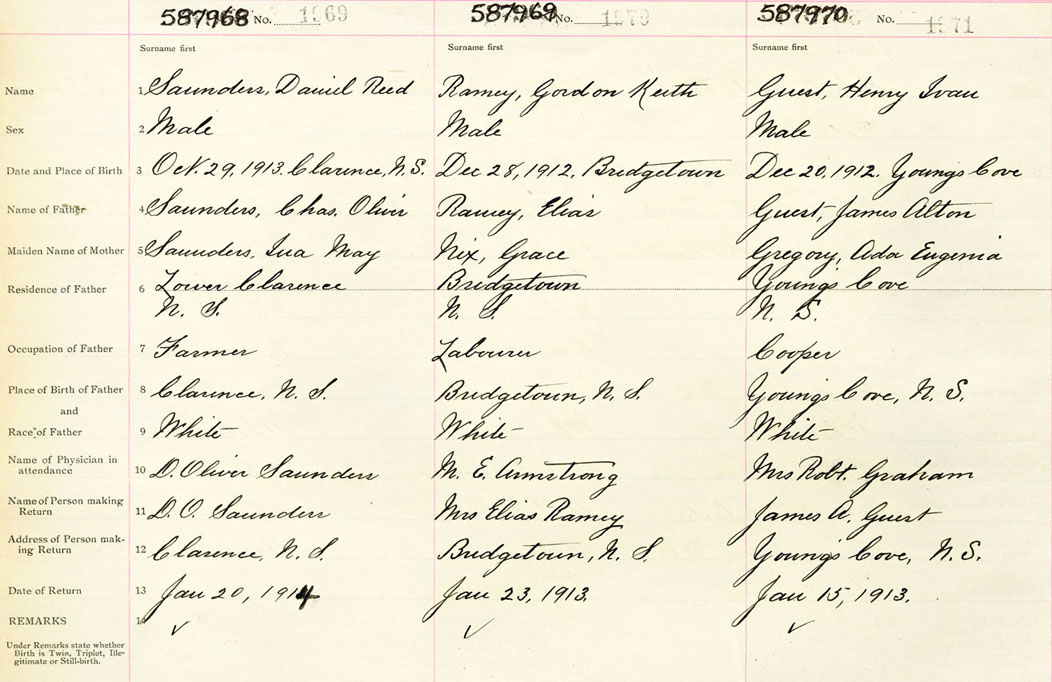 587968 No. 1969 587969 No. 1970 587970 No. 1971
Surname first Surname first Surname first
Name 1 Saunders, Daniel Reed Ramey, Gordon Keith Guest, Henry Ivan
Sex 2 Male Male Male
Date and Place of Birth 3 Oct. 29, 1913. Clarence, N.S. Dec 28, 1912, Bridgetown Dec 20, 1912. Youngs Cove
Name of Father 4 Saunders, Chas. Oliver Ramey, Elias Guest, James Alton
Maiden Name of Mother 5 Saunders, Ina May Nix, Grace Gregory, Ada Eugenia
Residence of Father 6 Lower Clarence Bridgetown Youngs Cove
N. S. N. S. N. S.
Occupation of Father 7 Farmer Labourer Cooper
Place of Birth of Father 8 Clarence, N. S. Bridgetown, N. S. Youngs Cove, N. S.
and
Race of Father 9 White White White
Name of Physician in
attendance 10 D. Oliver Saunders M. E. Armstrong Mrs Robt. Graham
Name of Person making
Return 11 D. O. Saunders Mrs Elias Ramey James A. Guest
Address of Person mak-
ing Return 12 Clarence, N. S. Bridgetown, N. S. Young's Cove, N.S.
Date of Return 13 Jan 20, 1914 Jan 23, 1913. Jan 15, 1913.
REMARKS 14 ✓ ✓ ✓
Under Remarks state whether
Birth is Twin, Triplet, Ille-
gitimate or Still-birth.